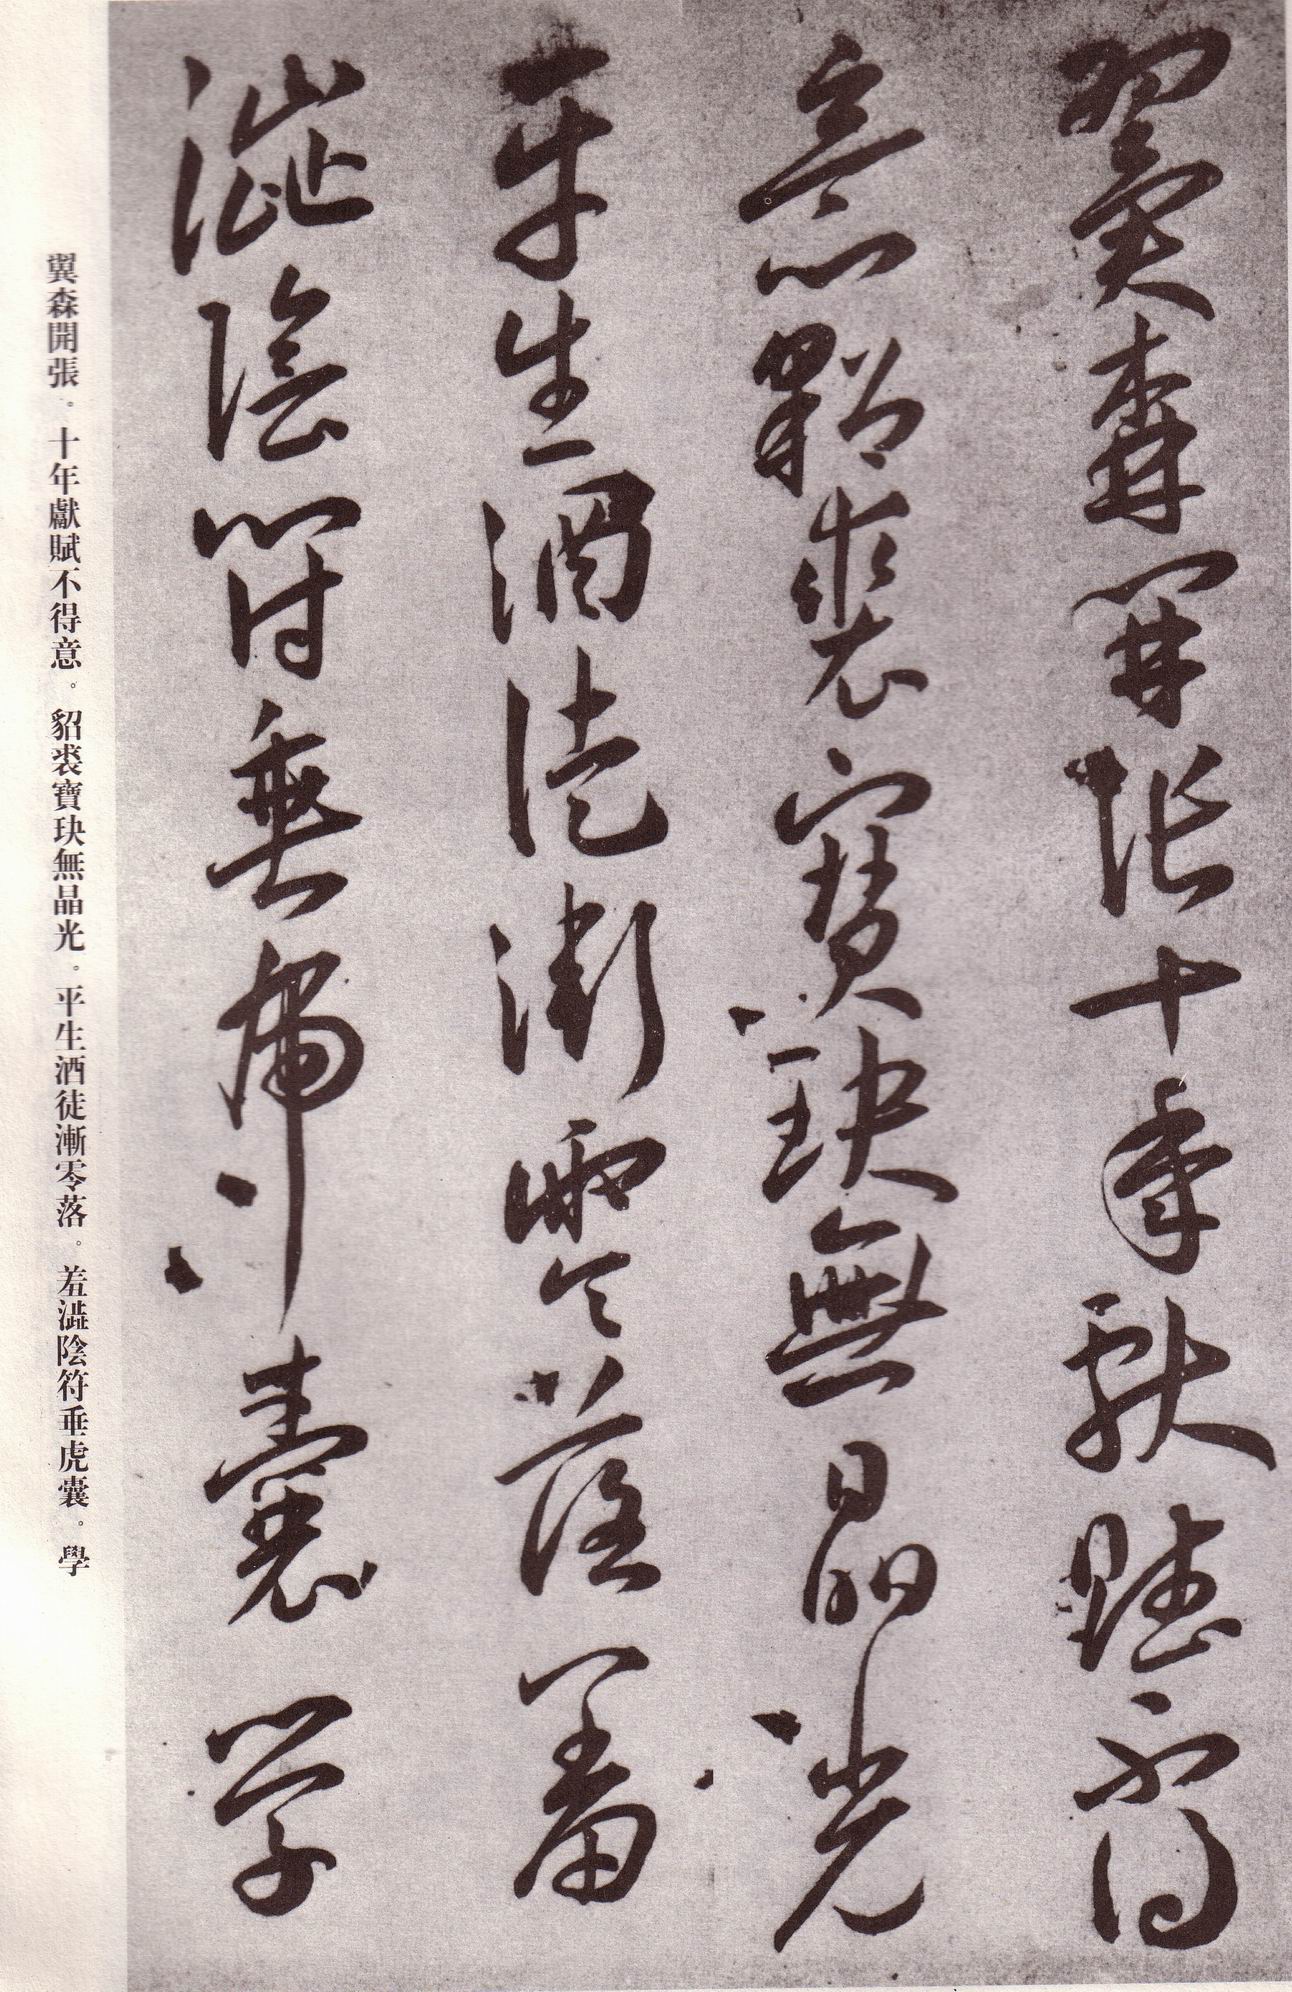 翼森開張十年獻賦不得
意貂裘寶玦無晶光
平生酒徒漸零落羞
澁陰符垂虎囊學
翼森開張。十年獻賦不得意。貂裘寶玦無晶光。平生酒徒漸零落。羞澁陰符垂虎囊。學